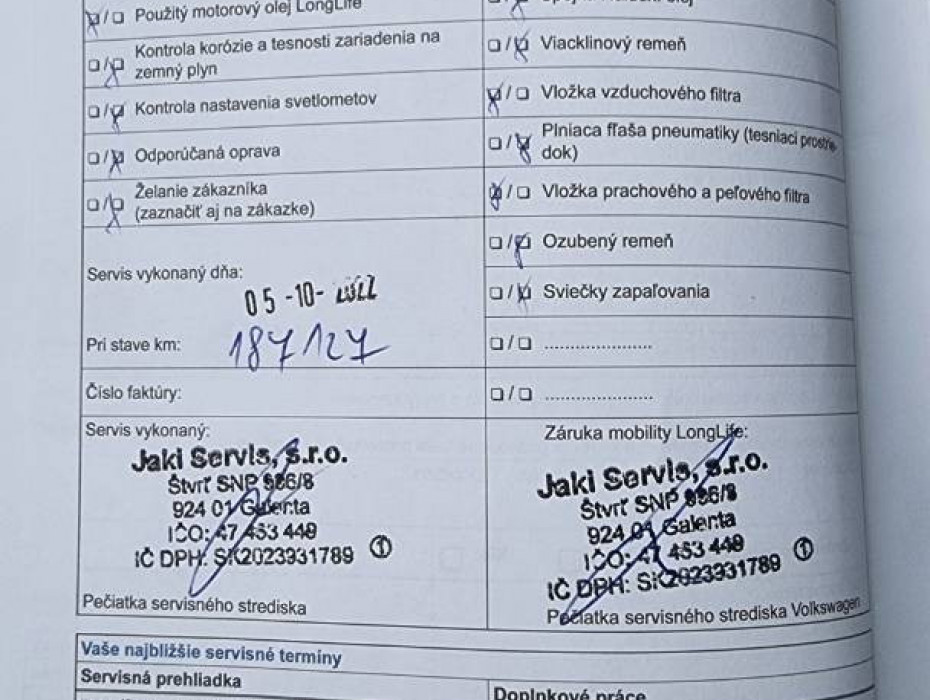 Použitý motorový olej LongLife
Kontrola korózie a tesnosti zariadenia na
zemný plyn
Kontrola nastavenia svetlometov
Odporúčaná oprava
Želanie zákazníka
(zaznačiť aj na zákazke)
Servis vykonaný dňa:
05-10-
Pri stave km: 187127
Číslo faktúry:
Viacklinový remeň
Vložka vzduchového filtra
Plniaca fľaša pneumatiky (tesniaci prostrie-
dok)
Vložka prachového a peľového filtra
Ozubený remeň
Sviečky zapaľovania
....................
....................
Servis vykonaný:
Jaki Servis, s.r.o.
Štvrť SNP 986/8
924 01 Galanta
IČO: 47 453 449
IČ DPH: SK2023931789 1
Pečiatka servisného strediska
Záruka mobility LongLife:
Jaki Servis, s.r.o.
Štvrť SNP 986/8
924 01 Galanta
IČO: 47 453 449
IČ DPH: SK2023931789 1
Pečiatka servisného strediska Volkswagen
Vaše najbližšie servisné termíny
Servisná prehliadka
Doplnkové práce